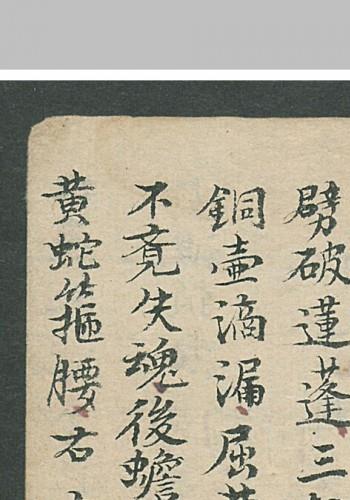 劈破蓮蓬三
銅壺滴漏屈
不竟失魂後蟾
黃蛇箍腰右